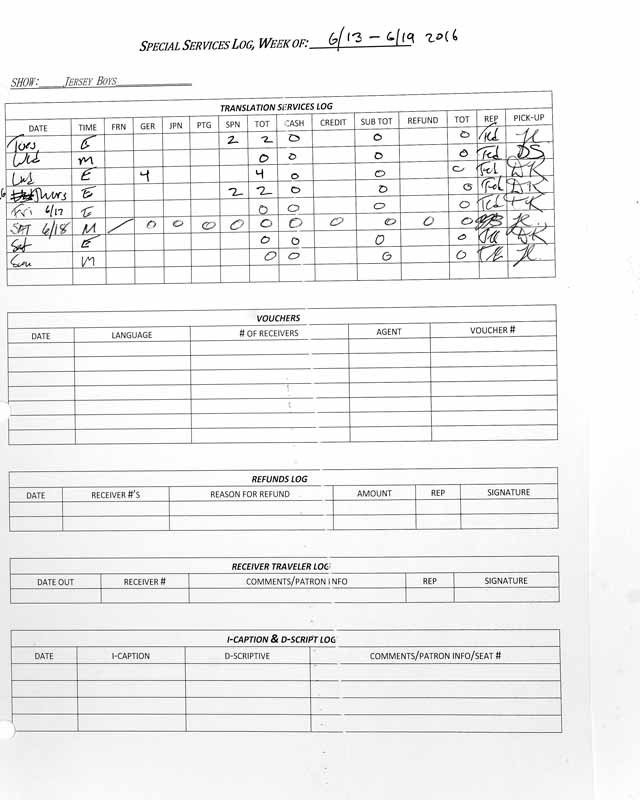 SPECIAL SERVICES LOG, WEEK OF: 6/13 – 6/19 2016
SHOW: JERSEY BOYS
TRANSLATION SERVICES LOG
DATE TIME FRN GER JPN PTG SPN TOT CASH CREDIT SUB TOT REFUND TOT REP PICK-UP
Tues E 2 2 0 0 0 Ted
Wed M 0 0 0 0 Ted DS
Wed E 4 4 0 0 0 Ted DK
Thurs E 2 2 0 0 0 Ted DK
Fri 6/17 E 0 0 0 0 Ted
SAT 6/18 M / 0 0 0 0 0 0 0 0 0 0
Sat E 0 0 0 0 DK
Sun M 0 0 0 0
VOUCHERS
DATE LANGUAGE # OF RECEIVERS AGENT VOUCHER #
REFUNDS LOG
DATE RECEIVER #'S REASON FOR REFUND AMOUNT REP SIGNATURE
RECEIVER TRAVELER LOG
DATE OUT RECEIVER # COMMENTS/PATRON INFO REP SIGNATURE
I-CAPTION & D-SCRIPT LOG
DATE I-CAPTION D-SCRIPTIVE COMMENTS/PATRON INFO/SEAT #